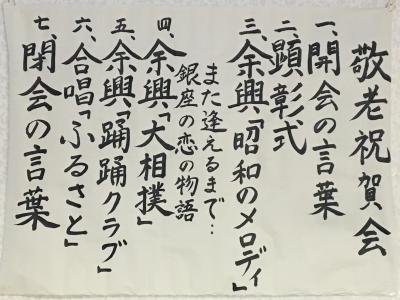 敬老祝賀会
一、開会の言葉
二、顕彰式
三、余興「昭和のメロディ」
また逢えるまで…
銀座の恋の物語
四、余興「大相撲」
五、余興「踊踊クラブ」
六、合唱「ふるさと」
七、閉会の言葉